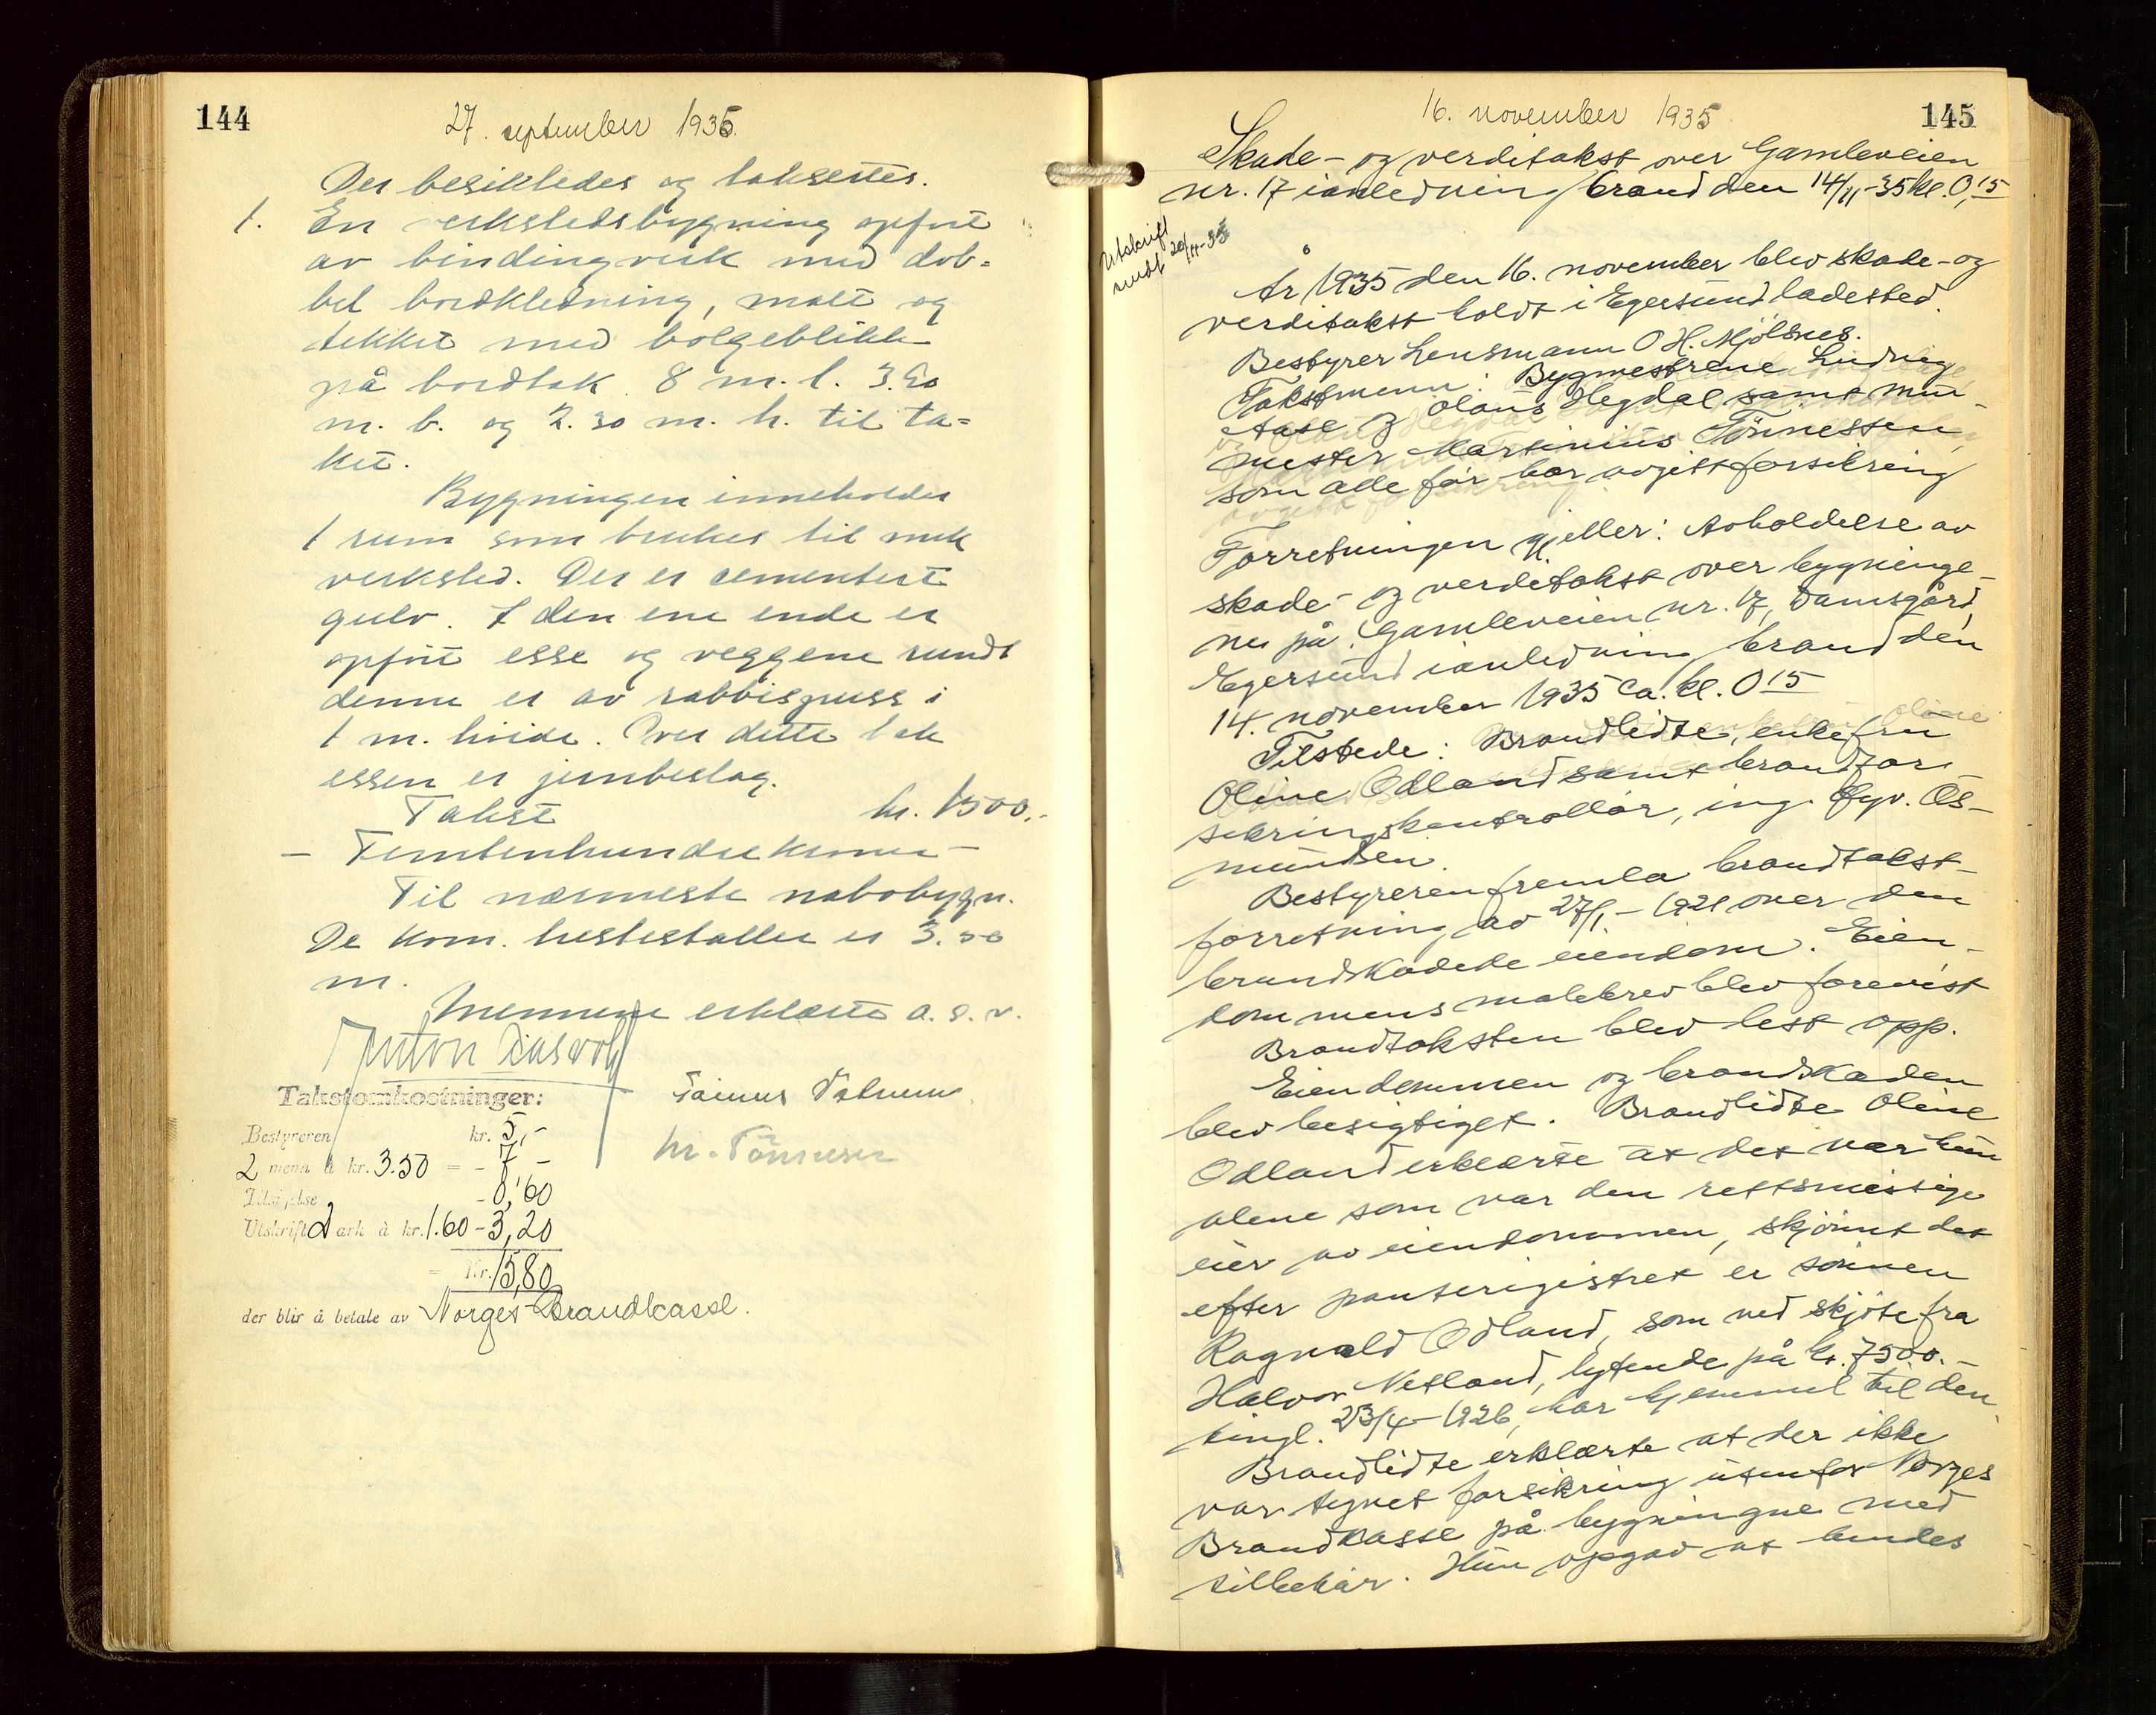 144
27. september 1935.
Der besiktedes og taksertes.
1. En verkstedsbygning opført
av bindingverk med dob=
bel bordkledning, malt og
tekket med bølgeblikk
på bordtak 8 m. l. 3.80
m. b. og 2.30 m. h. til ta=
ket.
Bygningen inneholder
1 rum som brukes til mek
verksted. Der er cementert
gulv. I den ene ende er
opført esse og veggene rundt
denne er av rabbispuss i
1 m. høide. Over dette bak
essen er jernbeslag.
Takst kr. 1500.-
- Femtenhundre kroner -
Til nærmeste nabobygn.
De kom. hestestaller er 3.50
m.
Mennene erklærte a. s. v.
Anton
Takstomkostninger:
Bestyreren kr. 5,-
2 menn à kr. 3.50 = - 7 -
- 0,60
Utskrift 2 ark à kr. 1.60 - 3,20
= Kr. 15,80
der blir å betale av Norges Brandkasse.
M. Tönnesen
16. november 1935
145
Skade- og verditakst over Gamleveien
nr. 17 ianledning brand den 14/11-35 kl. 0,15
Utskrift
sendt 20/11-35
År 1935 den 16. november blev skade- og
verditakst holdt i Egersund ladested.
Bestyrer Lensmann O H. Mjölsnes.
Takstmenn: Bygmestrene Ludvig
Aase og Olaus Hegdal samt mur-
mester Martinius Tönnessen,
som alle før har avgitt forsikring
Forretningen gjeller: Avholdelse av
skade- og verditakst over bygninge-
ne på Gamleveien nr. 17, Damsgård,
Egersund ianledning brand den
14. november 1935 ca. kl. 0 15
Tilstede: Brandlidte, enkefru
Oline Odland samt brandfor-
sikringskontrollör, ing. Öyv. As-
mundsen.
Bestyreren fremla brandtakst-
forretning av 27/1 - 1921 over den
brandskadede eiendom. Eien-
dommens målebrev blev forevist
Brandtaksten blev lest opp.
Eiendommen og brandskaden
blev besigtiget. Brandlidte Oline
Odland erklærte at det var hun
alene som var den rettsmessige
eier av eiendommen, skjönt det
efter panteregistret er sönnen
Ragnvald Odland, som ved skjöte fra
Halvor Netland, lytende på kr. 7500.-
tingl. 23/4 - 1926, har hjemmel til den.
Brandlidte erklærte at der ikke
var tegnet forsikring utenfor Norges
Brandkasse på bygningne med
tilbehör. Hun opgav at hendes